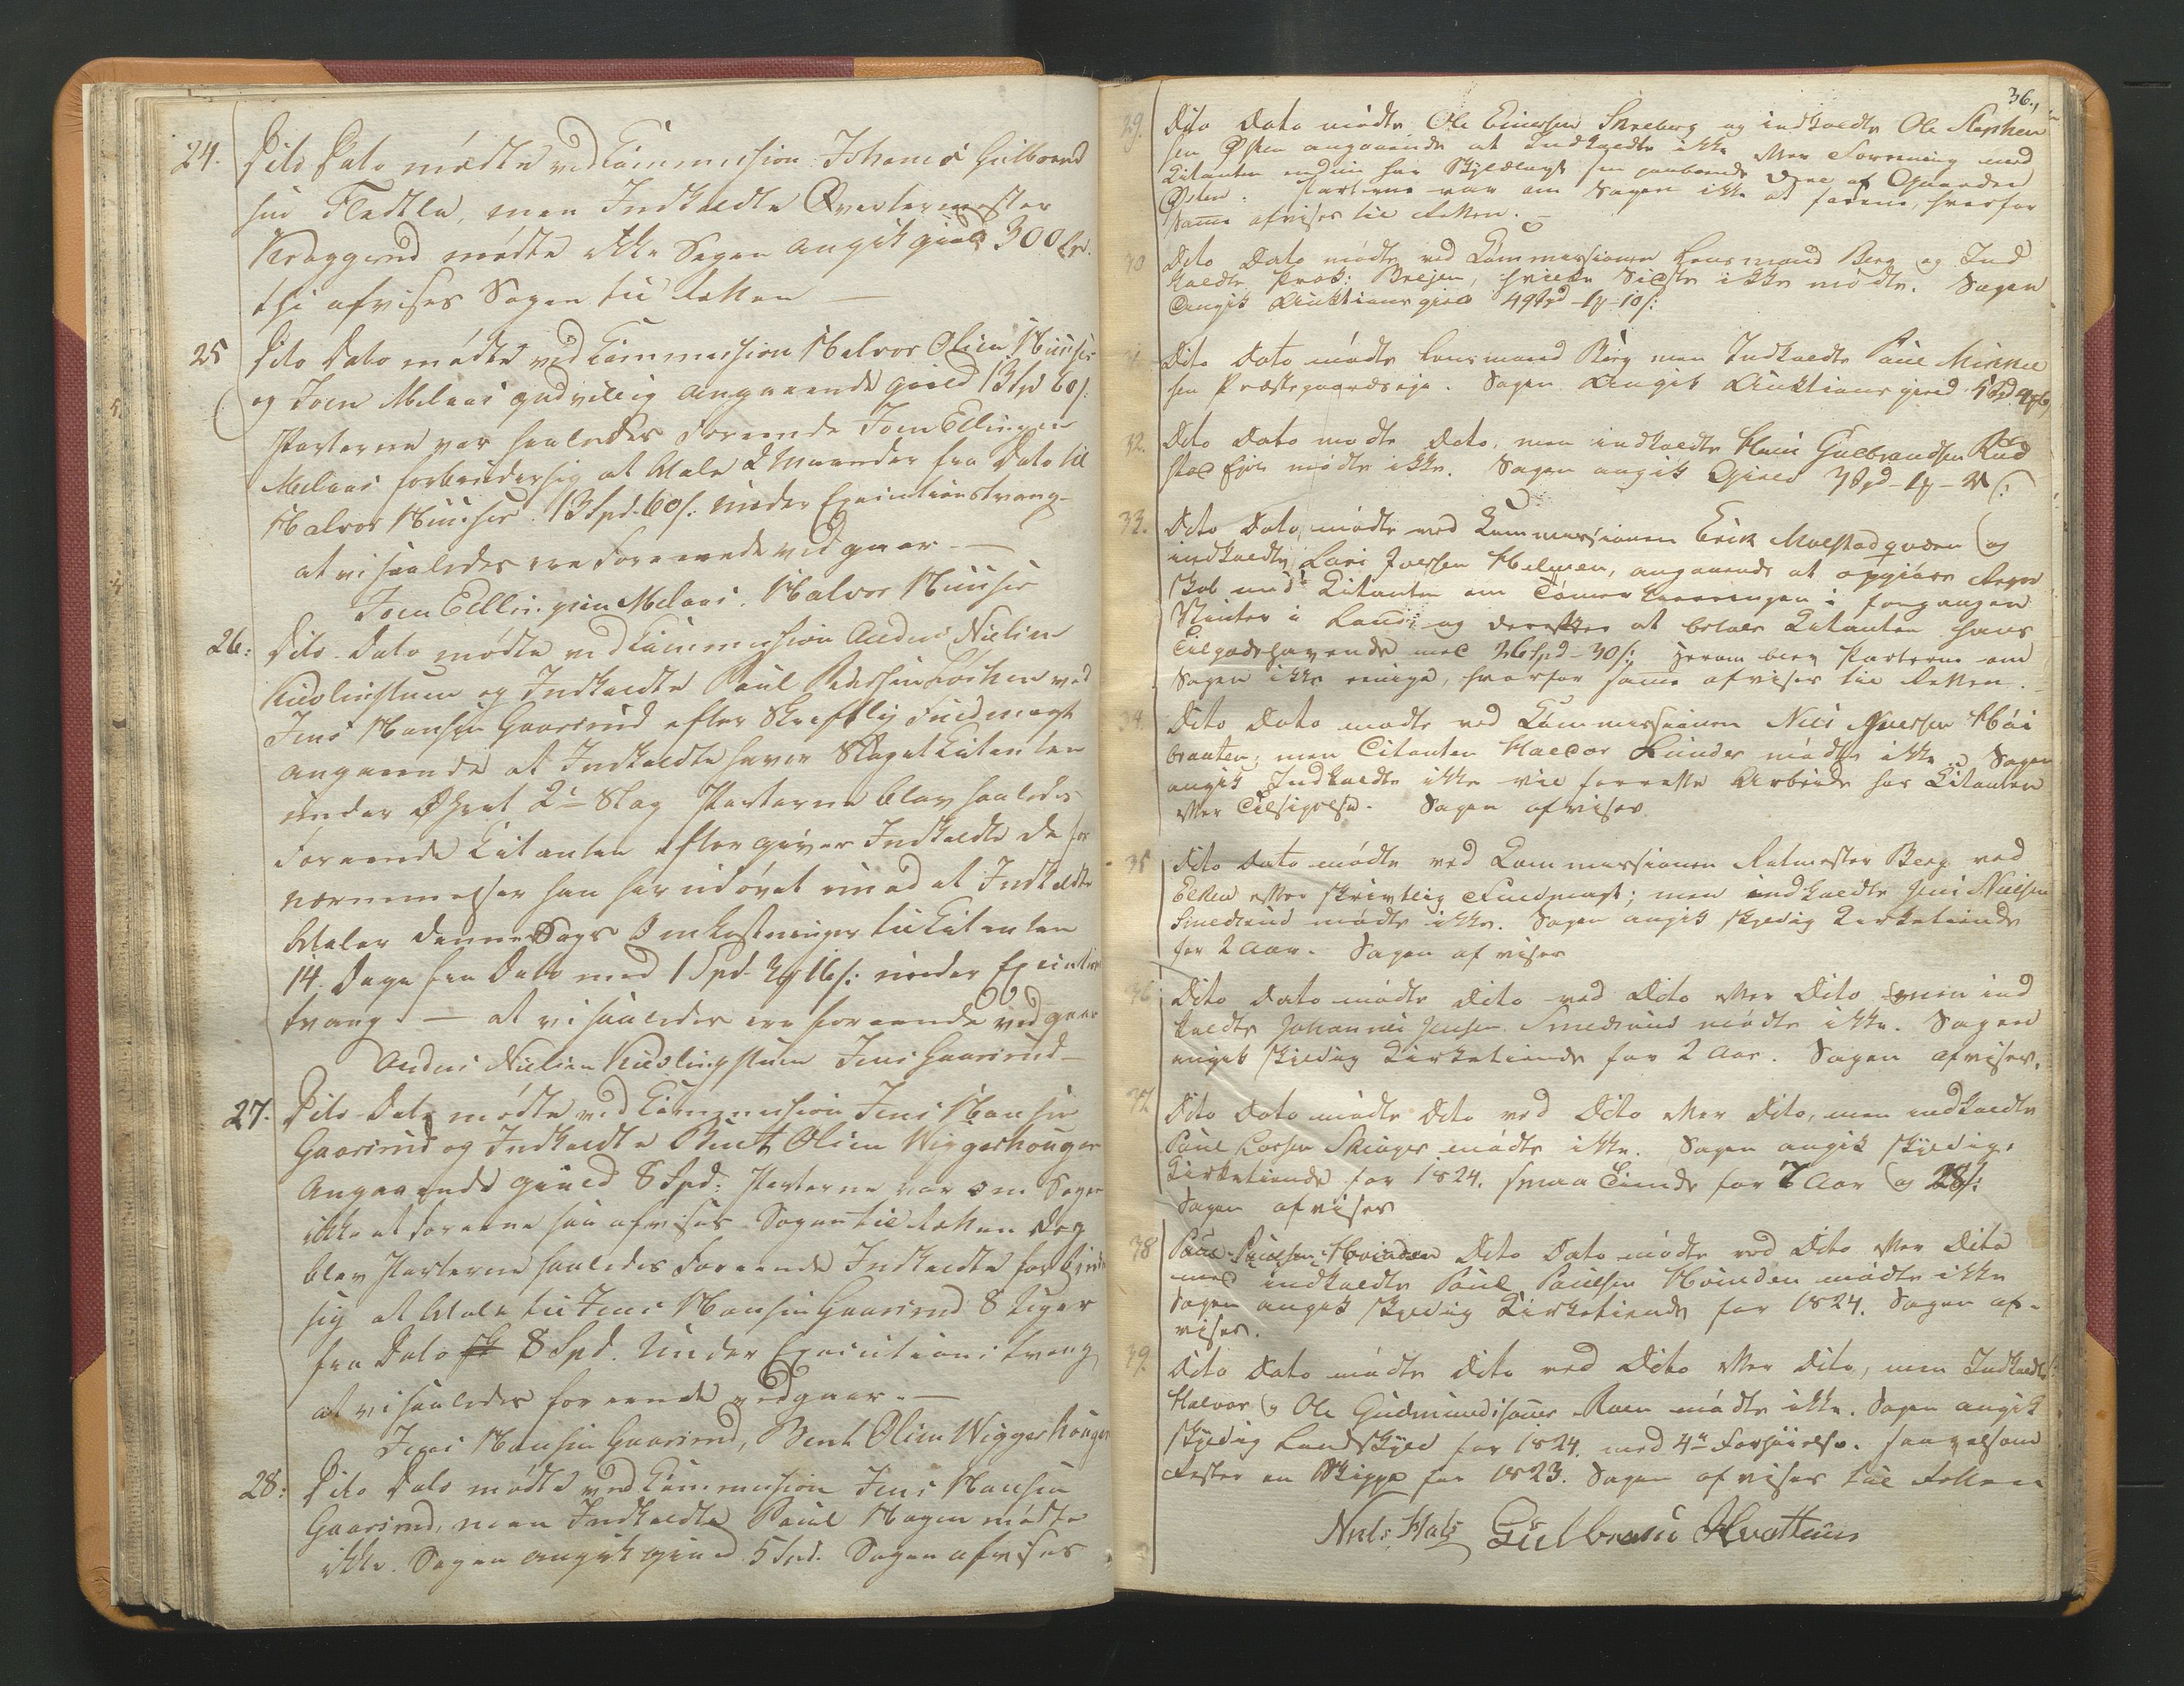 24. Dito Dato mødte ved Commission Johanes Gulbrand
sen Fledtla, men Indkaldte Qvartermester
Kraggerud mødte ikke Sagen angik gield 300 Spd.
thi afvises Sagen til Retten —
25 Dito Dato mødte ved Commission Halvor Olsen
og Joen Melaas godvillig angaaende gield 13 Spd 60 s.
Parterne var saaledes Foreende Joen Ellingsen
Melaas forbinder sig at betale 2 Maaneder fra Dato til
Halvor 13 Spd. 60 s: under Execiutionstvang
at vi saaledes ere Foreenede vedgaar —
Joen Ellingsen Melaas. Halvor
26: Dito Dato mødte ved Commission Anders Nielsen
og Indkaldte Paul Pedersen ved
Jens Hansen Gaarsrud efter Skriftlig Fuldmagt
angaaende at Indkaldte haver Slaget Citanten
under Øhret 2de Slag Parterne blev saaledes
Foreende Citanten eftergiver Indkaldte de for
nærmmelser han har udøvet imod at Indkaldte
betaler denne Sags Omkostninger til Citanten
14. Dage fra Dato med 1 Spd. 16 s: under Execiution
tvang. — at vi saaledes ere foreende vedgaar
Anders Nielsen Jens Gaarsrud —
27. Dito Dato mødte ved Commission Jens Hansen
Gaarsrud og Indkaldte Bent Olsen Wiggershougen
Angaaende gield 8 Spd: Parterne var om Sagen
ikke at Foreene saa afvises Sagen til Retten dog
blev Parterne saaledes Foreende Indkaldte forbinder
sig at betale til Jens Hansen Gaarsrud 8 Uger
fra Dato 8 Spd. Under Execiutions tvang
at vi saaledes foreende vedgaar. —
Jens Hansen Gaarsrud, Bent Olsen Wiggershougen
28: Dito Dato mødte ved Commission Jens Hansen
Gaarsrud, men Indkaldte Paul Hagen mødte
ikke. Sagen angik gield 5 Spd. Sagen afvises
36.
29. Dito Dato mødte Ole Einersen Skreberg og indkaldte Ole Stephen
sen Østen angaaende at Indkaldte ikke efter Forening med
Citanten endnu har Skyldlagt sin paaboende Deel af Gaarden
Østen. Parterne var om Sagen ikke at forene, hvorfor
samme afvises til Retten. —
30 Dito Dato mødte ved Commissionen Lensmand Berg og Ind
kaldte Prok: Breien, hvilke Sidste ikke mødte. Sagen
Angik Auktionsgield 49 Spd - 10 s:
31 Dito Dato mødte Lensmand Berg men Indkaldte Paul Mikkel
sen Præstegaardseje. Sagen Angik Auktionsgield 5 Spd
32. Dito Dato mødte Dito, men indkaldte Hans Gulbrandsen Rud
stad Ejer mødte ikke. Sagen angik Gield
33. Dito Dato mødte ved Commissionen Erik Molstadqværen og
indkaldte Lars Joersen Helmen, angaaende at opgiøre Regn
skab med Citanten om Tømmerkjøringen i forgangen
Vinter i Land, og derefter at betale Citanten hans
Tilgodehavende med 26 Spd - 30 s: herom blev Parterne om
Sagen ikke enige, hvorfor samme afvises til Retten.
34. Dito Dato mødte ved Commissionen Nils Iversen Høi
braaten, men Citanten Haldor Lunder mødte ikke. Sagen
angik Indkaldte ikke vil forrette Arbeide hos Citanten
efter Tilsigelse. Sagen afvises.
35 Dito Dato mødte ved Commissionen Ratmester Berg ved
Elken efter skrivtlig Fuldmagt; men indkaldte Jens Nielsen
Smedsrud mødte ikke. Sagen angik skyldig Kirketiende
for 2 Aar. Sagen afvises
36 Dito Dato mødte Dito ved Dito efter Dito men ind
kaldte Johannes Jensen Smedsrud mødte ikke. Sagen
angik skyldig Kirketiende for 2 Aar. Sagen afvises.
37. Dito Dato mødte Dito ved Dito efter Dito, men indkaldte
Paul Larsen Skinger mødte ikke. Sagen angik skyldig
Kirketiende for 1824. smaa Tiende for 7 Aar og 28 s:
Sagen afvises
38 Paul Paulsen Hvinden Dito Dato mødte ved Dito efter Dito
men indkaldte Paul Paulsen Hvinden mødte ikke
Sagen angik skyldig Kirketiende for 1824. Sagen af-
vises.
39. Dito Dato mødte Dito ved Dito efter Dito, men Indkaldte
Halvor og Ole Gudmundsønner Roen mødte ikke. Sagen angik
skyldig Landskyld for 1824. med 4de Forhøielse. saavelsom
Rester en Skippe for 1823. Sagen afvises til Retten
Niels Hals Gulbrand Kvattum